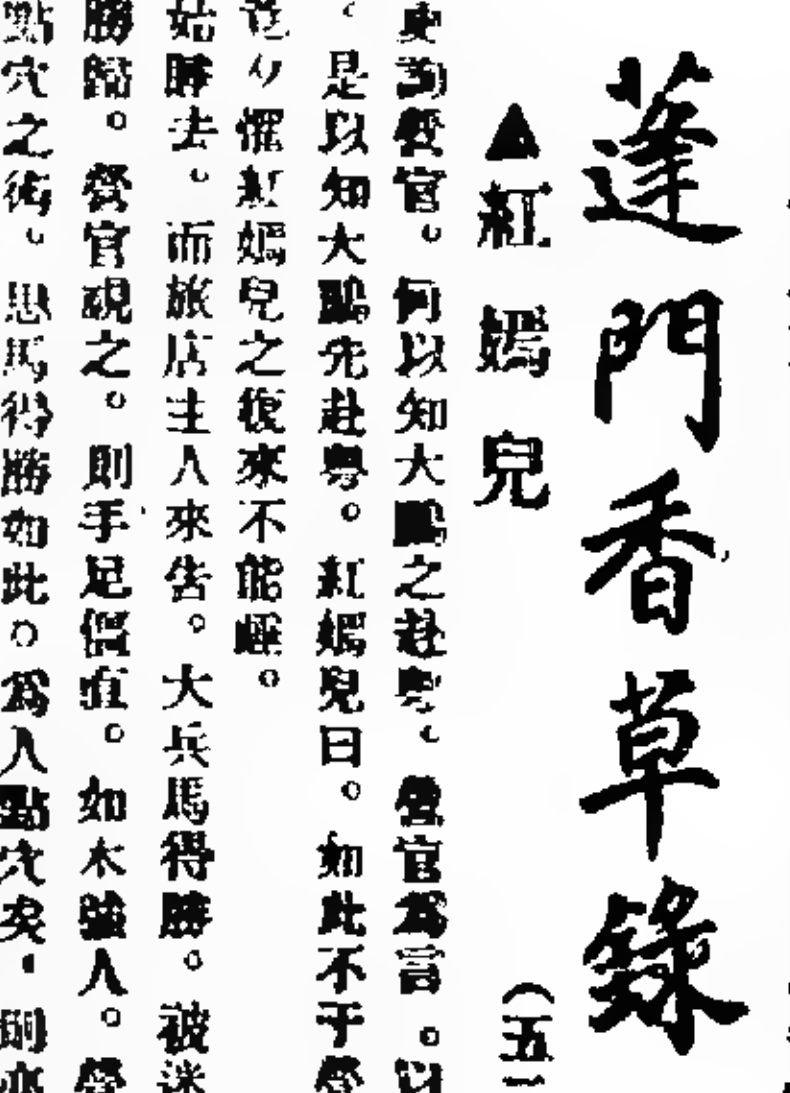 蓬門香草錄
▲紅嫣兒
（五
更詢營官。何以知大鵬之赴粵。營官爲言。以
。是以知大鵬先赴粵。紅嫣兒曰。如此不于營
懼紅嫣兒之復來不能睡。
始睡去。而旅店主人來告。大兵馬得勝。被迷
勝歸。營官視之。則手足僵直。如木強人。營
點穴之術。思馬得勝如此。爲人點穴矣。則亦